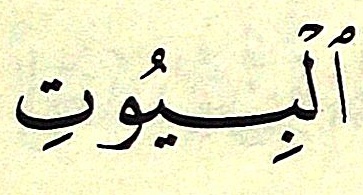 ٱلۡبِيُوتِ